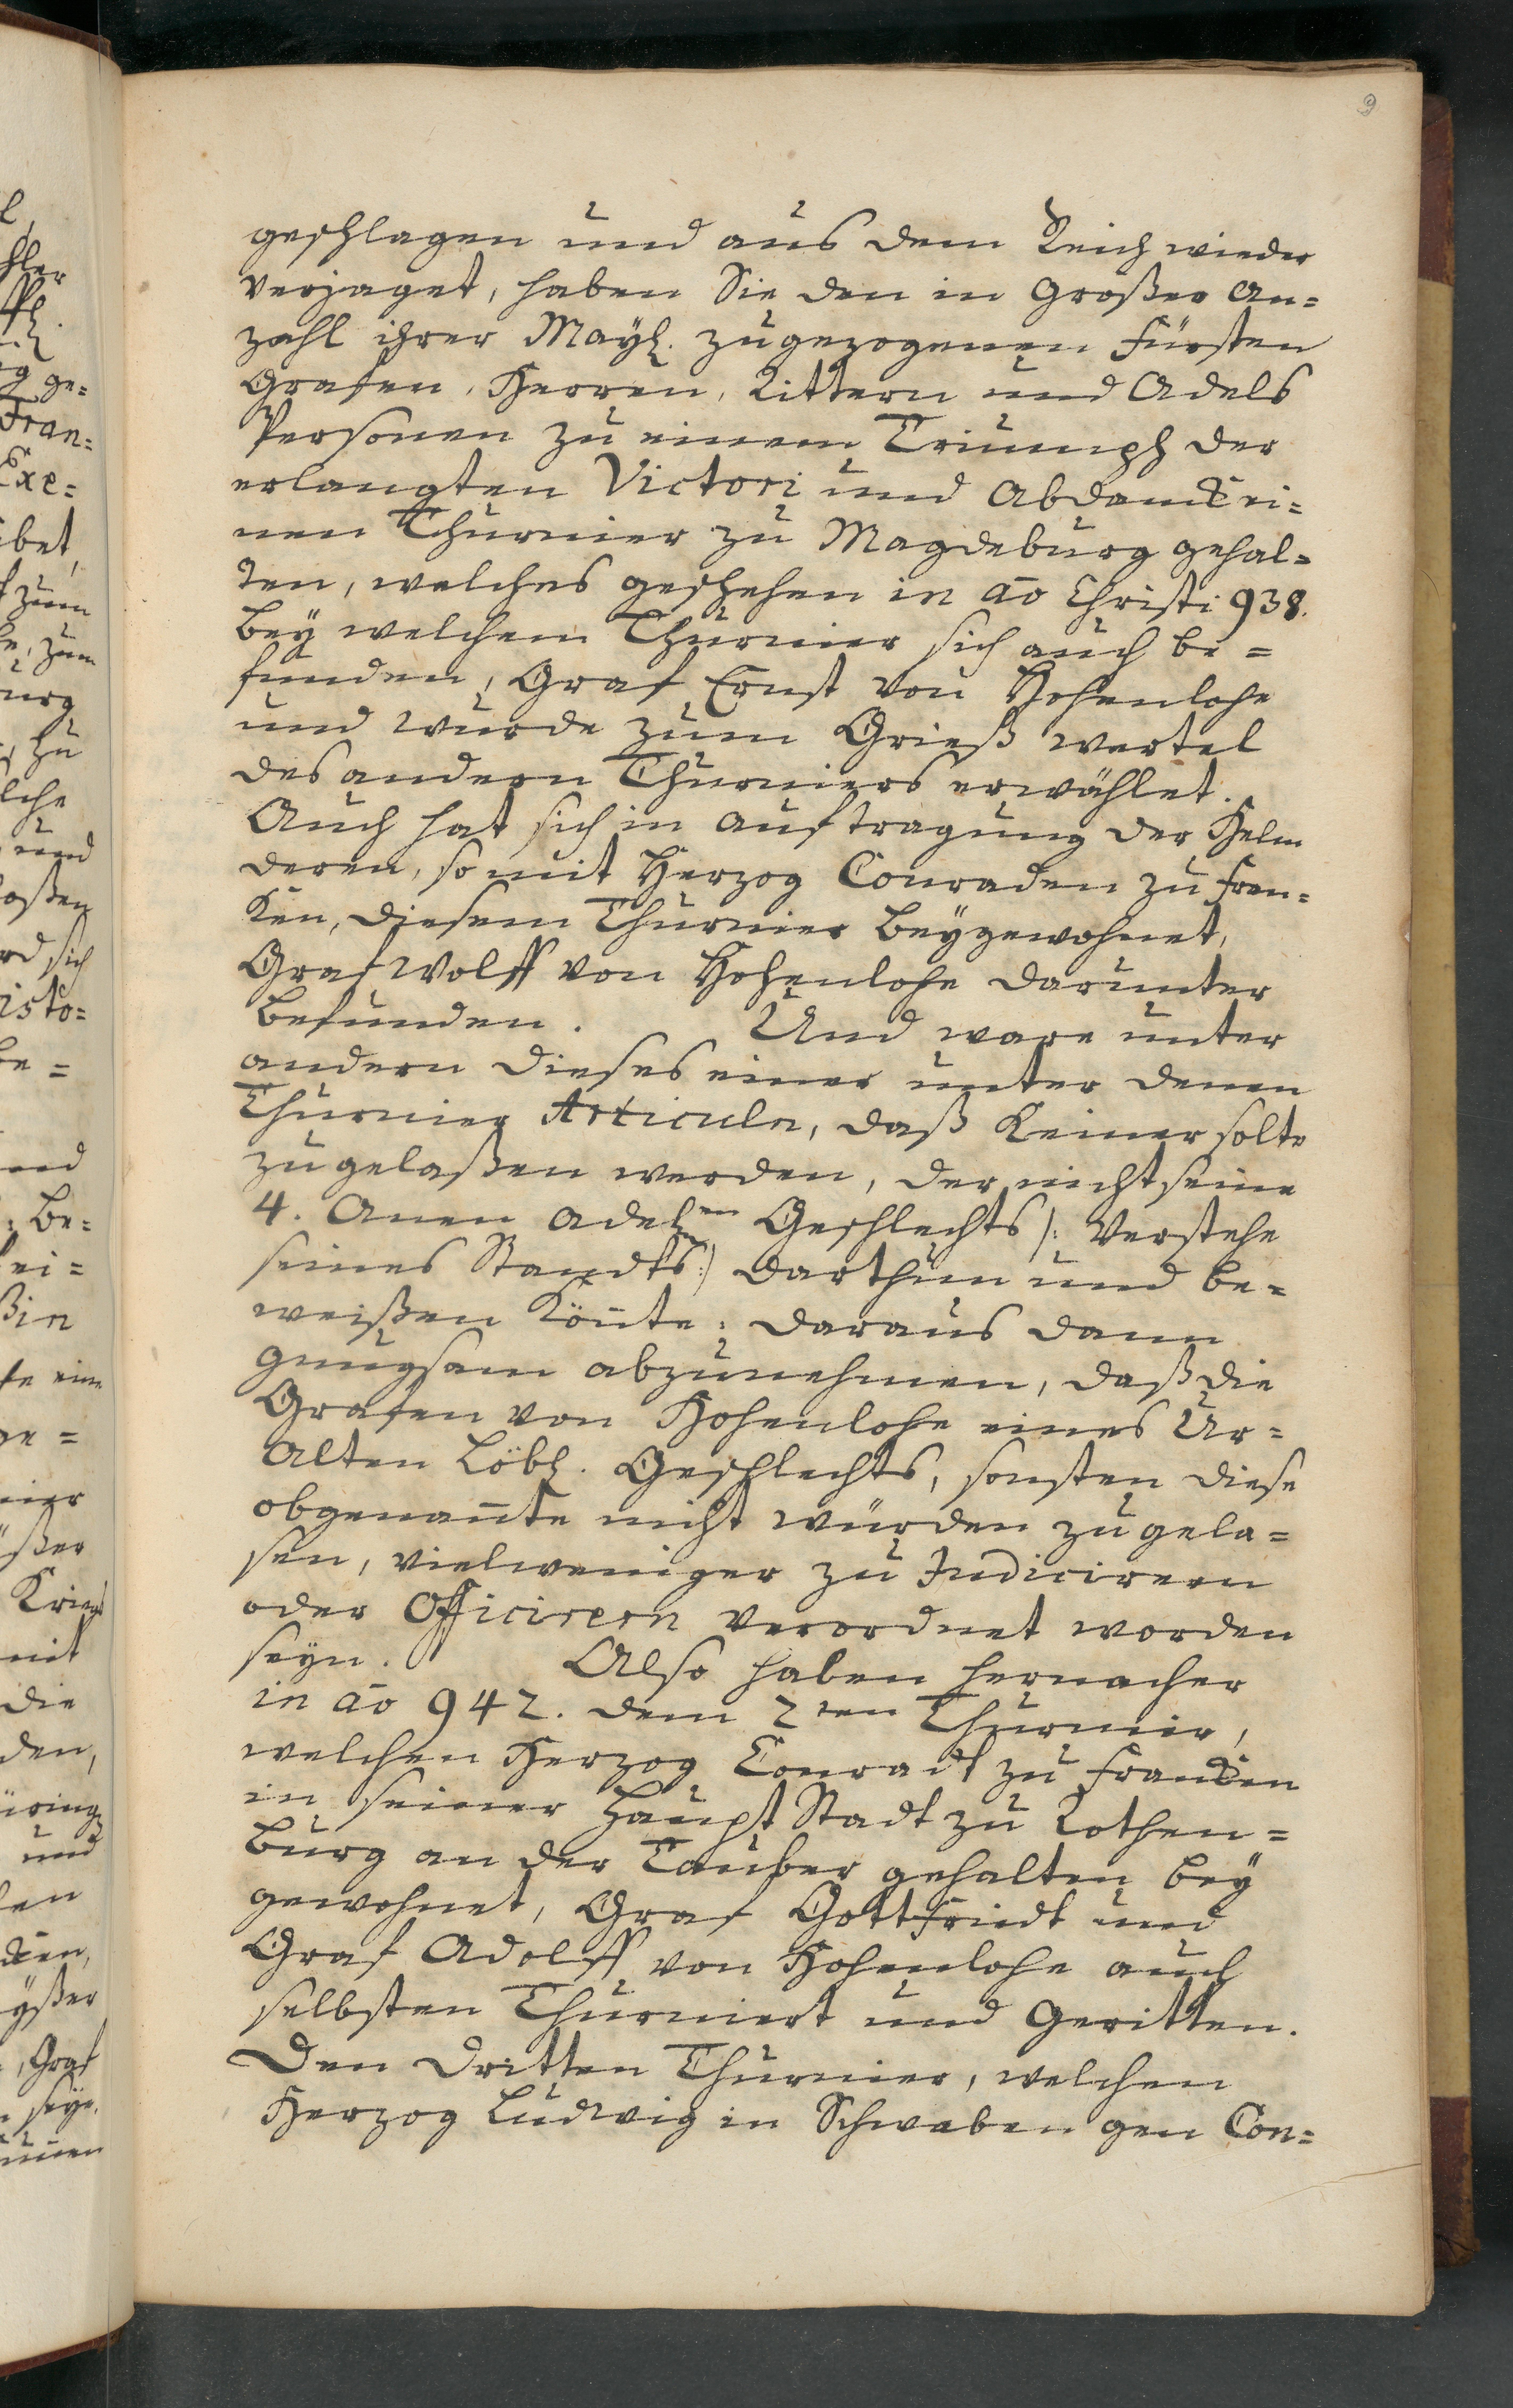 9
geschlagen und aus dem Reich wieder
verjaget, haben Sie den in großer An=
zahl ihrer Mayt. zugezogenen Fürsten
Grafen, Herren, Rittern und Adels
Personen zu einem Triumph der
erlangten Victori und Abdanck ei=
nen Thurnier zu Magdeburg gehal=
ten, welches geschehen in aō Christi 938.
Bey welchem Thurnier sich auch be=
funden, Graf Ernst von Hohenlohe
und wurde zum Grieß wertel
des andern Thurniers erwählet.
Auch hat sich in Auftragung der Helm
deren, so mit Herzog Conraden zu Fran=
ken, diesem Thurnier beygewohnet,
Graf Wolff von Hohenlohe darunter
befunden. Und ware unter
andern dieses einer unter denen
Thurnier Articuln, daß keiner solte
zugelaßen werden, der nicht seine
4. Anen Adelen Geschlechts /: Verstehe
seines Standts :/ darthun und be=
weißen köñte: daraus dann
gnugsam abzunehmen, daß die
Grafen von Hohenlohe eines Ur=
Alten Löbl. Geschlechts, sonsten diese
obgenañte nicht würden zu gela=
sen, vielweniger zu Judicirern
oder Officirern verordnet worden
seyn. Also haben hernacher
in aō 942. dem 2ten Thurnier,
welchen Herzog Conradt zu Francken
in seiner Haupt Stadt zu Rothen=
burg an der Tauber gehalten bey
gewohnet, Graf Gottfriedt und
Graf Adolff von Hohenlohe auch
selbsten Thurniert und Geritten.
Den dritten Thurnier, welchen
Herzog Ludwig in Schwaben gen Con=